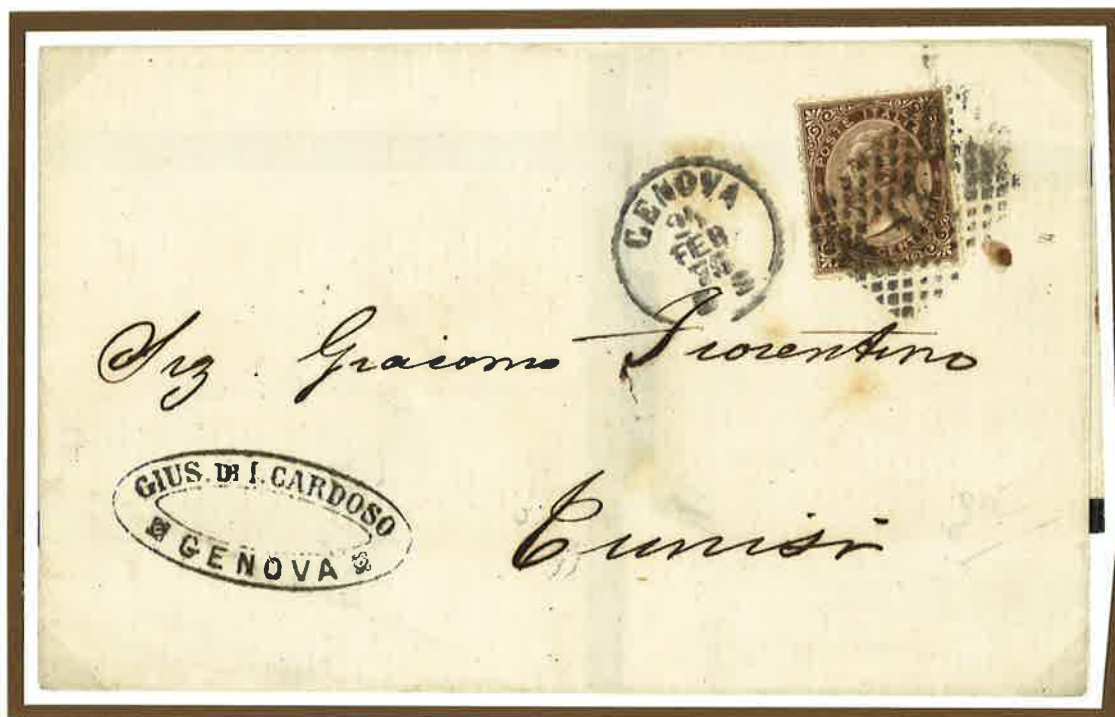 POSTE ITALIANE
GENOVA
24
FEB
73
Sig. Giacomo Fiorentino
GIUS. DI I. CARDOSO
GENOVA
Tunisi